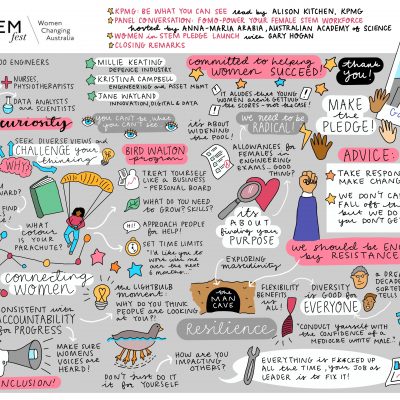 EM
fest
Women
Changing
Australia
KPMG: BE WHAT YOU CAN SEE read by ALISON KITCHEN, KPMG
PANEL CONVERSATION: FOMO-POWER YOUR FEMALE STEM WORKFORCE
hosted by ANNA-MARIA ARABIA, AUSTRALIAN ACADEMY OF SCIENCE
WOMEN in STEM PLEDGE LAUNCH with GARY HOGAN
CLOSING REMARKS
ENGINEERS
NURSES,
PHYSIOTHERAPISTS
DATA ANALYSTS
AND SCIENTISTS
curiosity
MILLIE KEATING
DEFENCE INDUSTRY
KRISTINA CAMPBELL
ENGINEERING and ASSET MGMT
JANE WATLAND
INNOVATION, DIGITAL & DATA
you can't be what
you can't see
committed to helping
women SUCCEED!
thank
you!
IT ALIDES that YOUNG
WOMEN aren't GETTING
the SCORES - not the CASE
it's ABOUT
WIDENING
the POOL!
we need to be
RADICAL!
MAKE
the
PLEDGE!
SEEK DIVERSE VIEWS and
CHALLENGE your
thinking
WHY?
BIRD WALTON
program
ALLOWANCES for
FEMALES in
ENGINEERING
EXAMS... GOOD
THING?
ADVICE:
TAKE RESPO
MAKE CHANGE
WE DON'T CA
FALL off the
but WE DO
YOU DON'T GE
WARD?
FIND
TREAT YOURSELF
LIKE a BUSINESS
- PERSONAL BOARD
WHAT DO YOU NEED
to GROW? SKILLS?
WHAT
COLOUR
is YOUR
PARACHUTE?
Hi!
APPROACH PEOPLE
for HELP!
SET TIME LIMITS
"I'd like you to
work with me
over the next
6 months..."
it's
ABOUT
finding your
PURPOSE
we should be EN
by RESISTANCE
EXPLORING
masculinity
connecting
WOMEN
the LIGHTBULB
moment:
WHY DO YOU THINK
PEOPLE are LOOKING
at YOU?!
THE
MAN
CAVE
FLEXIBILITY
BENEFITS
us
ALL!
DIVERSITY
is GOOD for
EVERYONE
a DREA
DECAD
CORTE
TELLS
CONSISTENT with
ACCOUNTABILITY
for PROGRESS
Resilience
"CONDUCT YOURSELF with
the CONFIDENCE of a
MEDIOCRE WHITE MALE."
MAKE SURE
WOMENS
VOICES are
HEARD!
INCLUSION!
DON'T JUST DO IT
it for YOURSELF
HOW are YOU
IMPACTING
OTHERS?
EVERYTHING is F*CKED UP
ALL the TIME, YOUR JOB as
LEADER is to FIX IT!